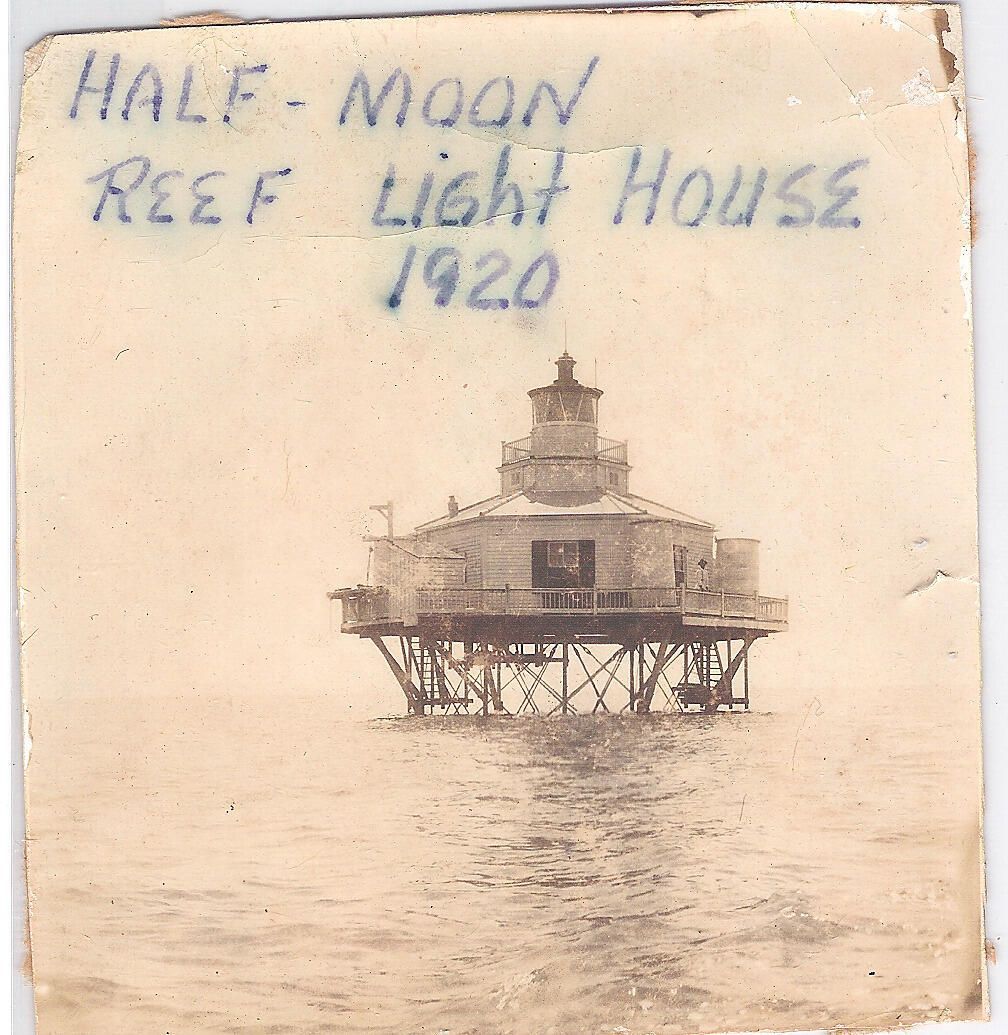 HALF - MOON
REEF LigHt HOUSE
1920